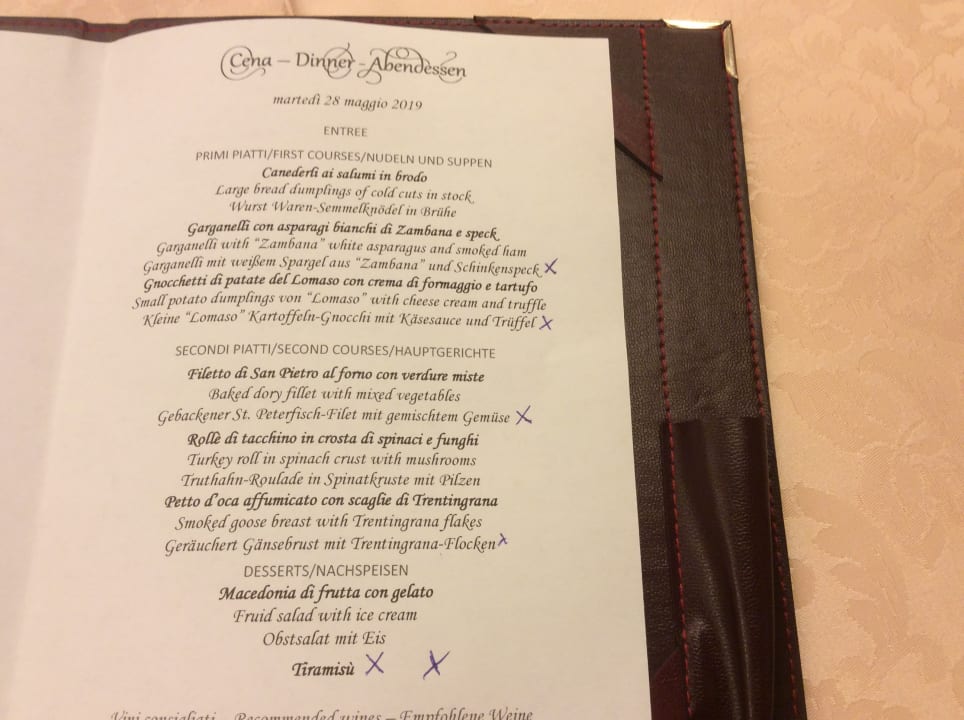 Cena – Dinner - Abendessen
martedì 28 maggio 2019
ENTREE
PRIMI PIATTI/FIRST COURSES/NUDELN UND SUPPEN
Canederli ai salumi in brodo
Large bread dumplings of cold cuts in stock
Wurst Waren-Semmelknödel in Brühe
Garganelli con asparagi bianchi di Zambana e speck
Garganelli with "Zambana" white asparagus and smoked ham
Garganelli mit weißem Spargel aus "Zambana" und Schinkenspeck X
Gnocchetti di patate del Lomaso con crema di formaggio e tartufo
Small potato dumplings von "Lomaso" with cheese cream and truffle
Kleine "Lomaso" Kartoffeln-Gnocchi mit Käsesauce und Trüffel X
SECONDI PIATTI/SECOND COURSES/HAUPTGERICHTE
Filetto di San Pietro al forno con verdure miste
Baked dory fillet with mixed vegetables
Gebackener St. Peterfisch-Filet mit gemischtem Gemüse X
Rollè di tacchino in crosta di spinaci e funghi
Turkey roll in spinach crust with mushrooms
Truthahn-Roulade in Spinatkruste mit Pilzen
Petto d'oca affumicato con scaglie di Trentingrana
Smoked goose breast with Trentingrana flakes
Geräuchert Gänsebrust mit Trentingrana-Flocken X
DESSERTS/NACHSPEISEN
Macedonia di frutta con gelato
Fruid salad with ice cream
Obstsalat mit Eis
Tiramisù X X
Vini consigliati – Recommended wines – Empfohlene Weine